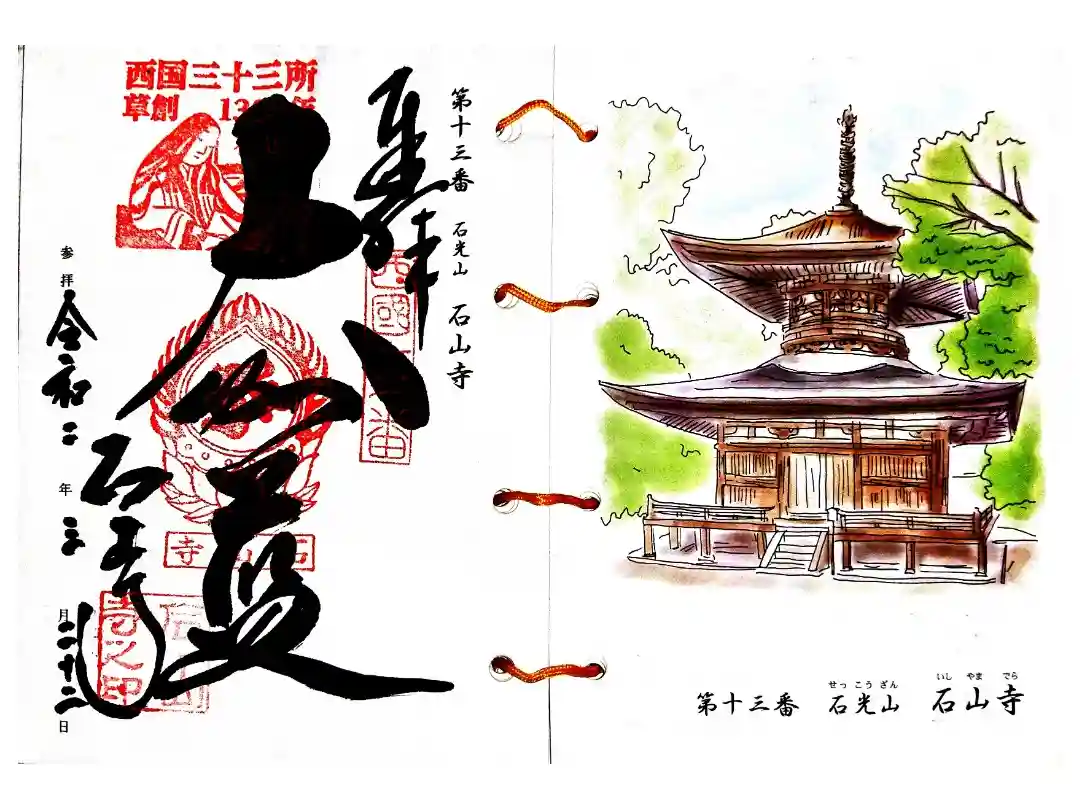 第十三番 石光山 石山寺
奉拝
西国三十三所
草創 13 年
大伽藍
西國 番
石山寺
石山寺
寺之印
石山
参拝 令和二年三月二十二日
せっこうざん いしやまでら
第十三番 石光山 石山寺